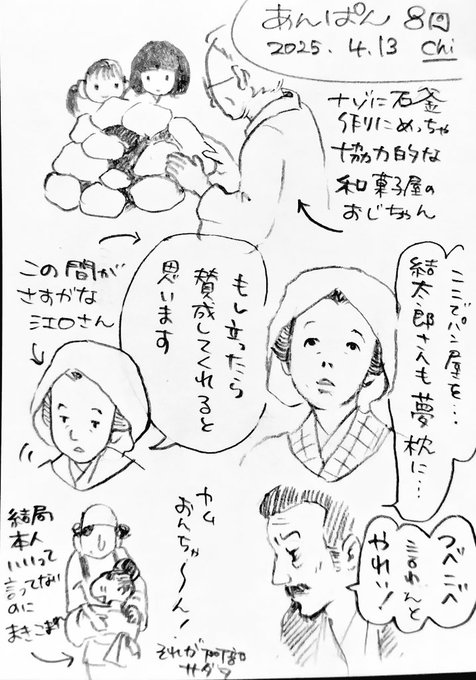 あんぱん 8回
2025.4.13 chi
ナゾに石釜
作りにめっちゃ
協力的な
和菓子屋の
おじちゃん
ここでパン屋を…
結太郎さんも夢
枕に…
もし立ったら
賛成してくれると
思います
この間が
さすがな
江口さん
つべこべ
言わんと
やれい!
ヤム
おんちゃ〜ん!
結局
本人
いいって
言ってない
のに
まきこまれ
それが
サダメ